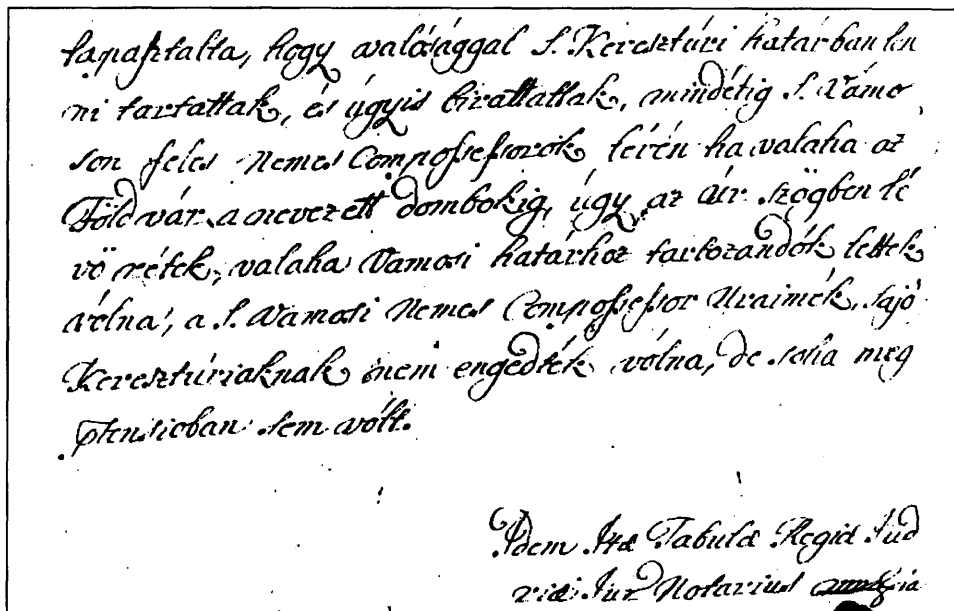 tapasztalta, hogy valósággal S. Keresztúri határban len
ni tartattak, és úgyis birattattak, mindétig S. Vámo
son feles Nemes Compossessorok lévén ha valaha az
Földvár a nevezett dombokig, úgy az úr szögben lé
vö rétek, valaha Vamosi határhoz tartozandók lettek
vólna, a S. Vamosi Nemes Compossessor Uraimék, Sajó
Keresztúriaknak nem engedték vólna, de soha meg
ptensioban sem vólt.
Idem Ittæ Tabulæ Regiæ Jud
riæ Jur Notarius